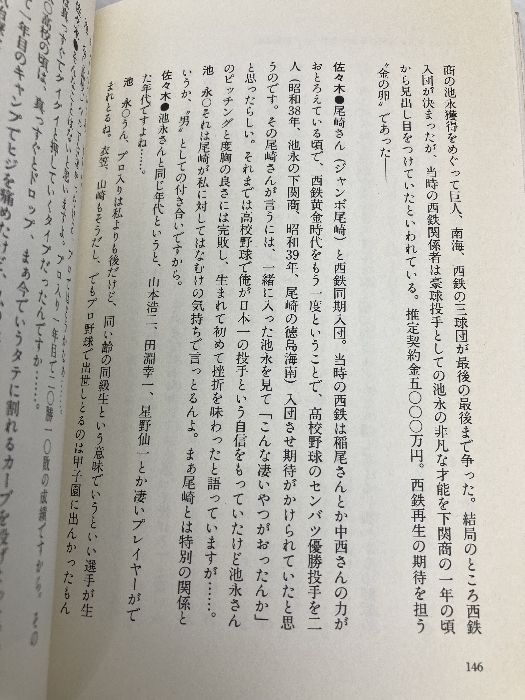 商の池永獲得をめぐって巨人、南海、西鉄の三球団が最後の最後まで争った。結局のところ西鉄
入団が決まったが、当時の西鉄関係者は豪球投手としての池永の非凡な才能を下関商の一年の頃
から見出し目をつけていたといわれている。推定契約金五〇〇〇万円。西鉄再生の期待を担う
“金の卵”であった──
佐々木●尾崎さん（ジャンボ尾崎）と西鉄同期入団。当時の西鉄は稲尾さんとか中西さんの力が
おとろえている頃で、西鉄黄金時代をもう一度ということで、高校野球のセンバツ優勝投手を二
人（昭和38年、池永の下関商、昭和39年、尾崎の徳島海南）入団させ期待がかけられていたと思
うのです。その尾崎さんが言うには、一緒に入った池永を見て「こんな凄いやつがおったんか」
と思ったらしい。それまでは高校野球で俺が日本一の投手という自信をもっていたけど池永さん
のピッチングと度胸の良さには完敗し、生まれて初めて挫折を味わったと語っていますが……。
池　永〇それは尾崎が私に対してはなむけの気持ちで言っとるんよ。まぁ尾崎とは特別の関係と
いうか、“男”としての付き合いですから。
佐々木●池永さんと同じ年代というと、山本浩二、田淵幸一、星野仙一とか凄いプレイヤーがで
た年代ですよね……。
池　永〇うん、プロ入りは私よりも後だけど、同い齢の同級生という意味でいうといい選手が生
まれとるね。衣笠、山崎もそうだし、でもプロ野球で出世しとるのは甲子園に出んかったもん
〇高校の頃は、真っすぐとドロップ、まぁ今でいうタテに割れるカーブを投げ
146